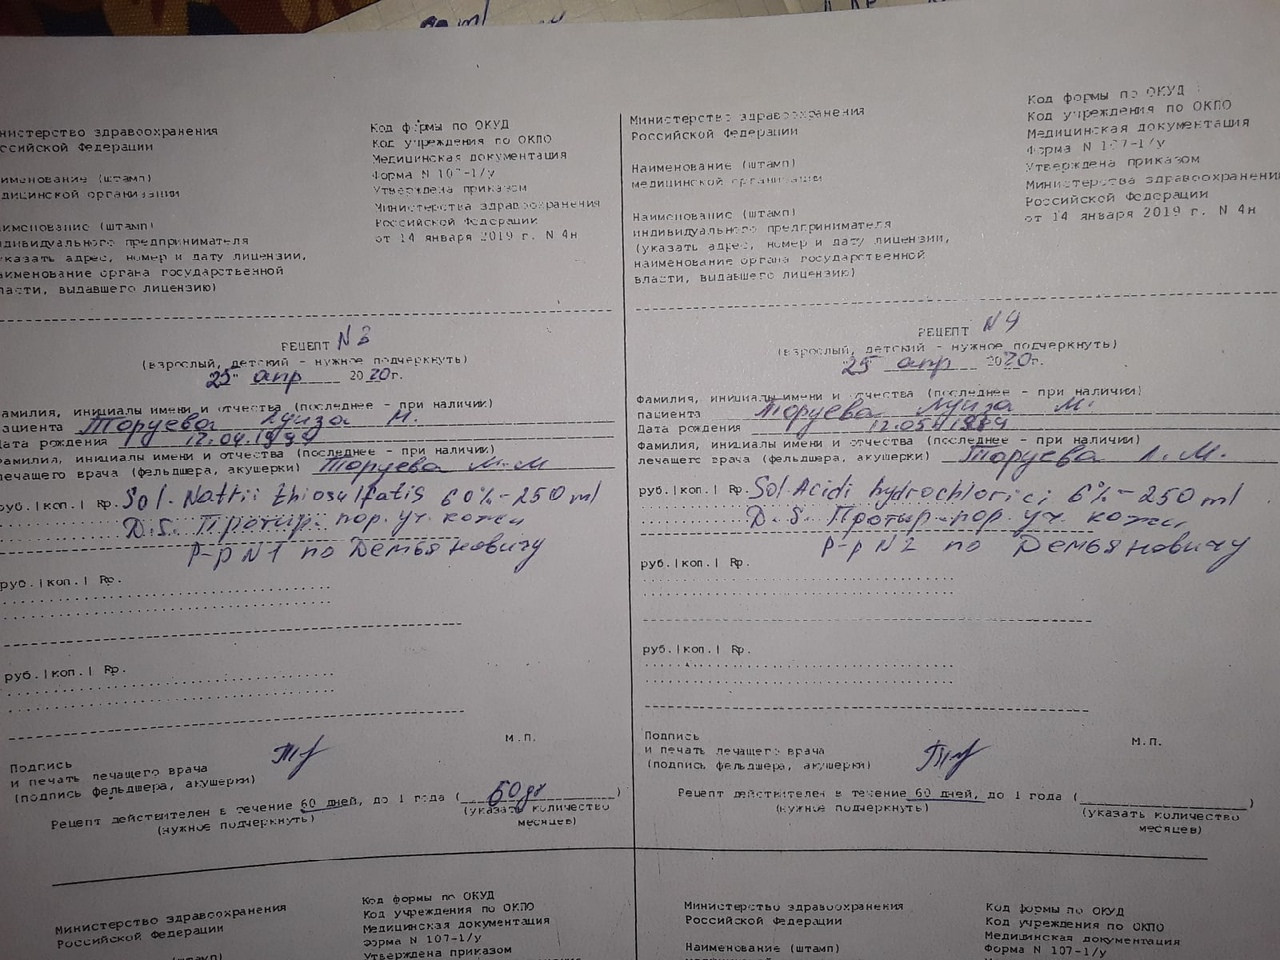 нистерство здравоохранения
ссийской Федерации
аименование (штамп)
дицинской организации
аименование (штамп)
дивидуального предпринимателя
указать адрес, номер и дату лицензии,
аименование органа государственной
ласти, выдавшего лицензию)
Код формы по ОКУД
Код учреждения по ОКПО
Медицинская документация
Форма N 107-1/у
Утверждена приказом
Министерства здравоохранения
Российской Федерации
от 14 января 2019 г. N 4н
РЕЦЕПТ N3
(взрослый, детский - нужное подчеркнуть)
"25" апр 2020г.
амилия, инициалы имени и отчества (последнее - при наличии)
пациента Торуева Луиза М.
Дата рождения
амилия, инициалы имени и отчества (последнее - при наличии)
лечащего врача (фельдшера, акушерки) Торуева М.М
руб.|коп.| Rp. Sol. Natrii thiosulfatis 60%-250 ml
D.S. Протир. пор. уч. кожи
Р-р N1 по Демьяновичу
руб.|коп.| Rp.
руб.|коп.| Rp.
Подпись
и печать лечащего врача
(подпись фельдшера, акушерки)
М.П.
Рецепт действителен в течение 60 дней, до 1 года (60 дн)
(нужное подчеркнуть)
(указать количество
месяцев)
Министерство здравоохранения
Российской Федерации
Наименование (штамп)
медицинской организации
Наименование (штамп)
индивидуального предпринимателя
(указать адрес, номер и дату лицензии,
наименование органа государственной
власти, выдавшего лицензию)
Код формы по ОКУД
Код учреждения по ОКПО
Медицинская документация
Форма N 107-1/у
Утверждена приказом
Министерства здравоохранени
Российской Федерации
от 14 января 2019 г. N 4н
РЕЦЕПТ N4
(взрослый, детский - нужное подчеркнуть)
"25" апр 2020г.
Фамилия, инициалы имени и отчества (последнее - при наличии)
пациента Торуева Луиза М.
Дата рождения
Фамилия, инициалы имени и отчества (последнее - при наличии)
лечащего врача (фельдшера, акушерки) Торуева Л.М.
руб.|коп.| Rp. Sol. Acidi hydrochlorici 6%-250 ml
D.S. Протир. пор. уч. кожи
Р-р N2 по Демьяновичу
руб.|коп.| Rp.
руб.|коп.| Rp.
Подпись
и печать лечащего врача
(подпись фельдшера, акушерки)
М.П.
Рецепт действителен в течение 60 дней, до 1 года ( )
(нужное подчеркнуть)
(указать количество
месяцев)
Министерство здравоохранения
Российской Федерации
Код формы по ОКУД
Код учреждения по ОКПО
Медицинская документация
Форма N 107-1/у
Утверждена приказом
Министерство здравоохранения
Российской Федерации
Наименование (штамп)
Код формы по ОКУД
Код учреждения по ОКПО
Медицинская документация
Форма N 107-1/у